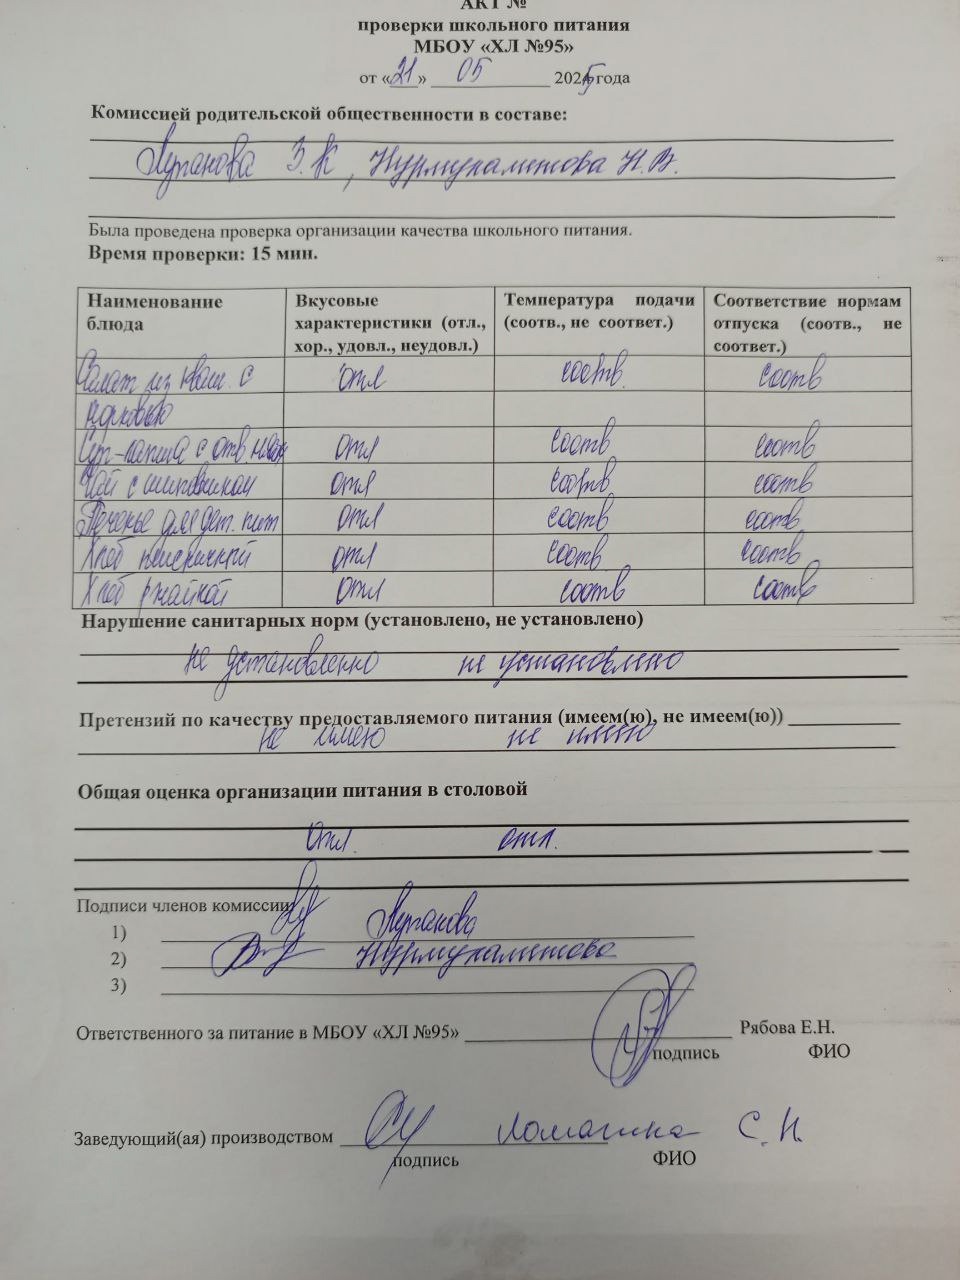 АКТ №
проверки школьного питания
МБОУ «ХЛ №95»
от «21» 05 2025 года
Комиссией родительской общественности в составе:
З.К, Нурмухаметова Н.В.
Была проведена проверка организации качества школьного питания.
Время проверки: 15 мин.
Наименование блюда Вкусовые характеристики (отл., хор., удовл., неудовл.) Температура подачи (соотв., не соответ.) Соответствие нормам отпуска (соотв., не соответ.)
Салат из с отл соотв. соотв
морковью
Суп-лапша с отв. отл соотв соотв
Чай с шиповником отл соотв соотв
Печенье для дет. пит отл соотв соотв
Хлеб пшеничный отл соотв соотв
Хлеб ржаной отл соотв соотв
Нарушение санитарных норм (установлено, не установлено)
не установленно не установлено
Претензий по качеству предоставляемого питания (имеем(ю), не имеем(ю))
не имею не имею
Общая оценка организации питания в столовой
Отл. отл.
Подписи членов комиссии
1)
2) Нурмухаметова
3)
Ответственного за питание в МБОУ «ХЛ №95» Рябова Е.Н.
подпись ФИО
Заведующий(ая) производством С.Н.
подпись ФИО